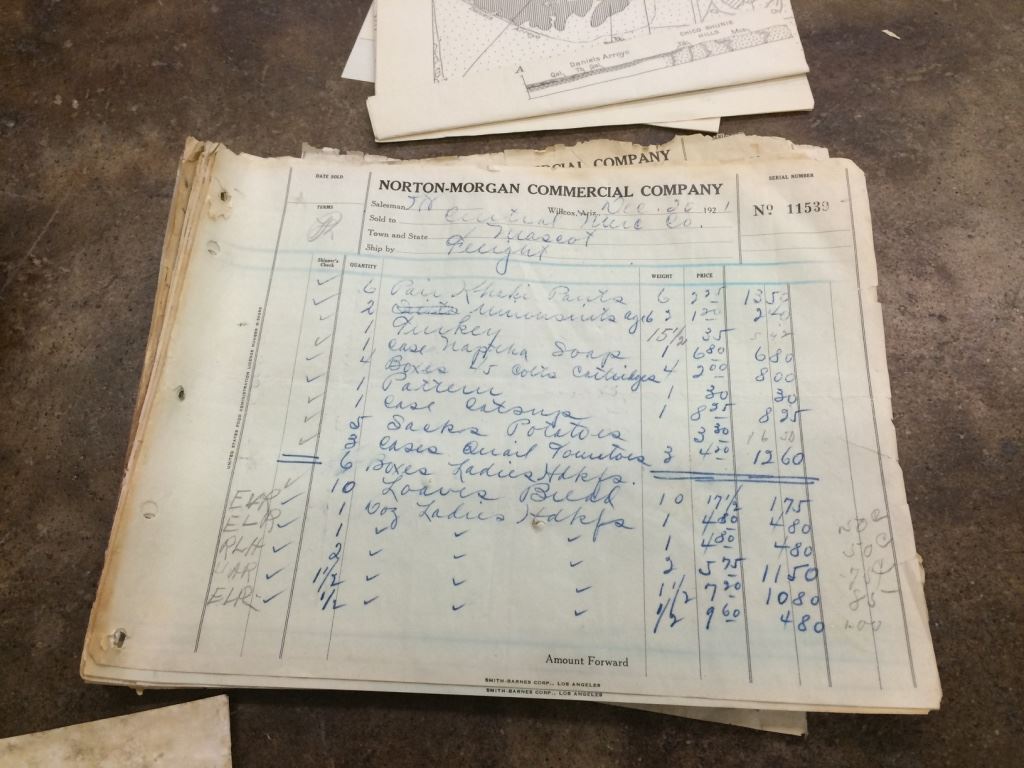 CHICO SHUNIE
HILLS
Daniels Arroyo
A
Qal
Tb Qal
COMMERCIAL COMPANY
DATE SOLD
NORTON-MORGAN COMMERCIAL COMPANY
SERIAL NUMBER
Salesman Willcox, Ariz. Dec. 26 1921
Nº 11539
TERMS
Sold to Central Merc Co.
Town and State Mascot
Ship by Freight
Shipper's Check QUANTITY WEIGHT PRICE
6 Pair Khaki Pants 6 2 25 13 50
2 Unionsuits 2 1 20 2 40
1 Turkey 15 1/2 35 5 42
1 Case Naptha Soap 1 6 80 6 80
4 Boxes 45 Colts Cartridges 4 2 00 8 00
1 Pattern 30 30
1 Case Catsup 1 8 25 8 25
5 Sacks Potatoes 3 30 16 50
3 Cases Quail Tomatoes 3 4 20 12 60
6 Boxes Ladies Hdkfs.
10 Loaves Bread 10 17 1/2 1 75
ELR ✓ 1 Doz Ladies Hdkfs 1 4 80 4 80
ELR ✓ 1 ✓ ✓ ✓ 1 4 80 4 80
RLH ✓ 2 ✓ ✓ ✓ 2 5 75 11 50
AR ✓ 1 1/2 ✓ ✓ ✓ 1 1/2 7 20 10 80
ELR ✓ 1/2 ✓ ✓ ✓ 1/2 9 60 4 80
Amount Forward
SMITH-BARNES CORP., LOS ANGELES
SMITH-BARNES CORP., LOS ANGELES
UNITED STATES FOOD ADMINISTRATION LICENSE NUMBER